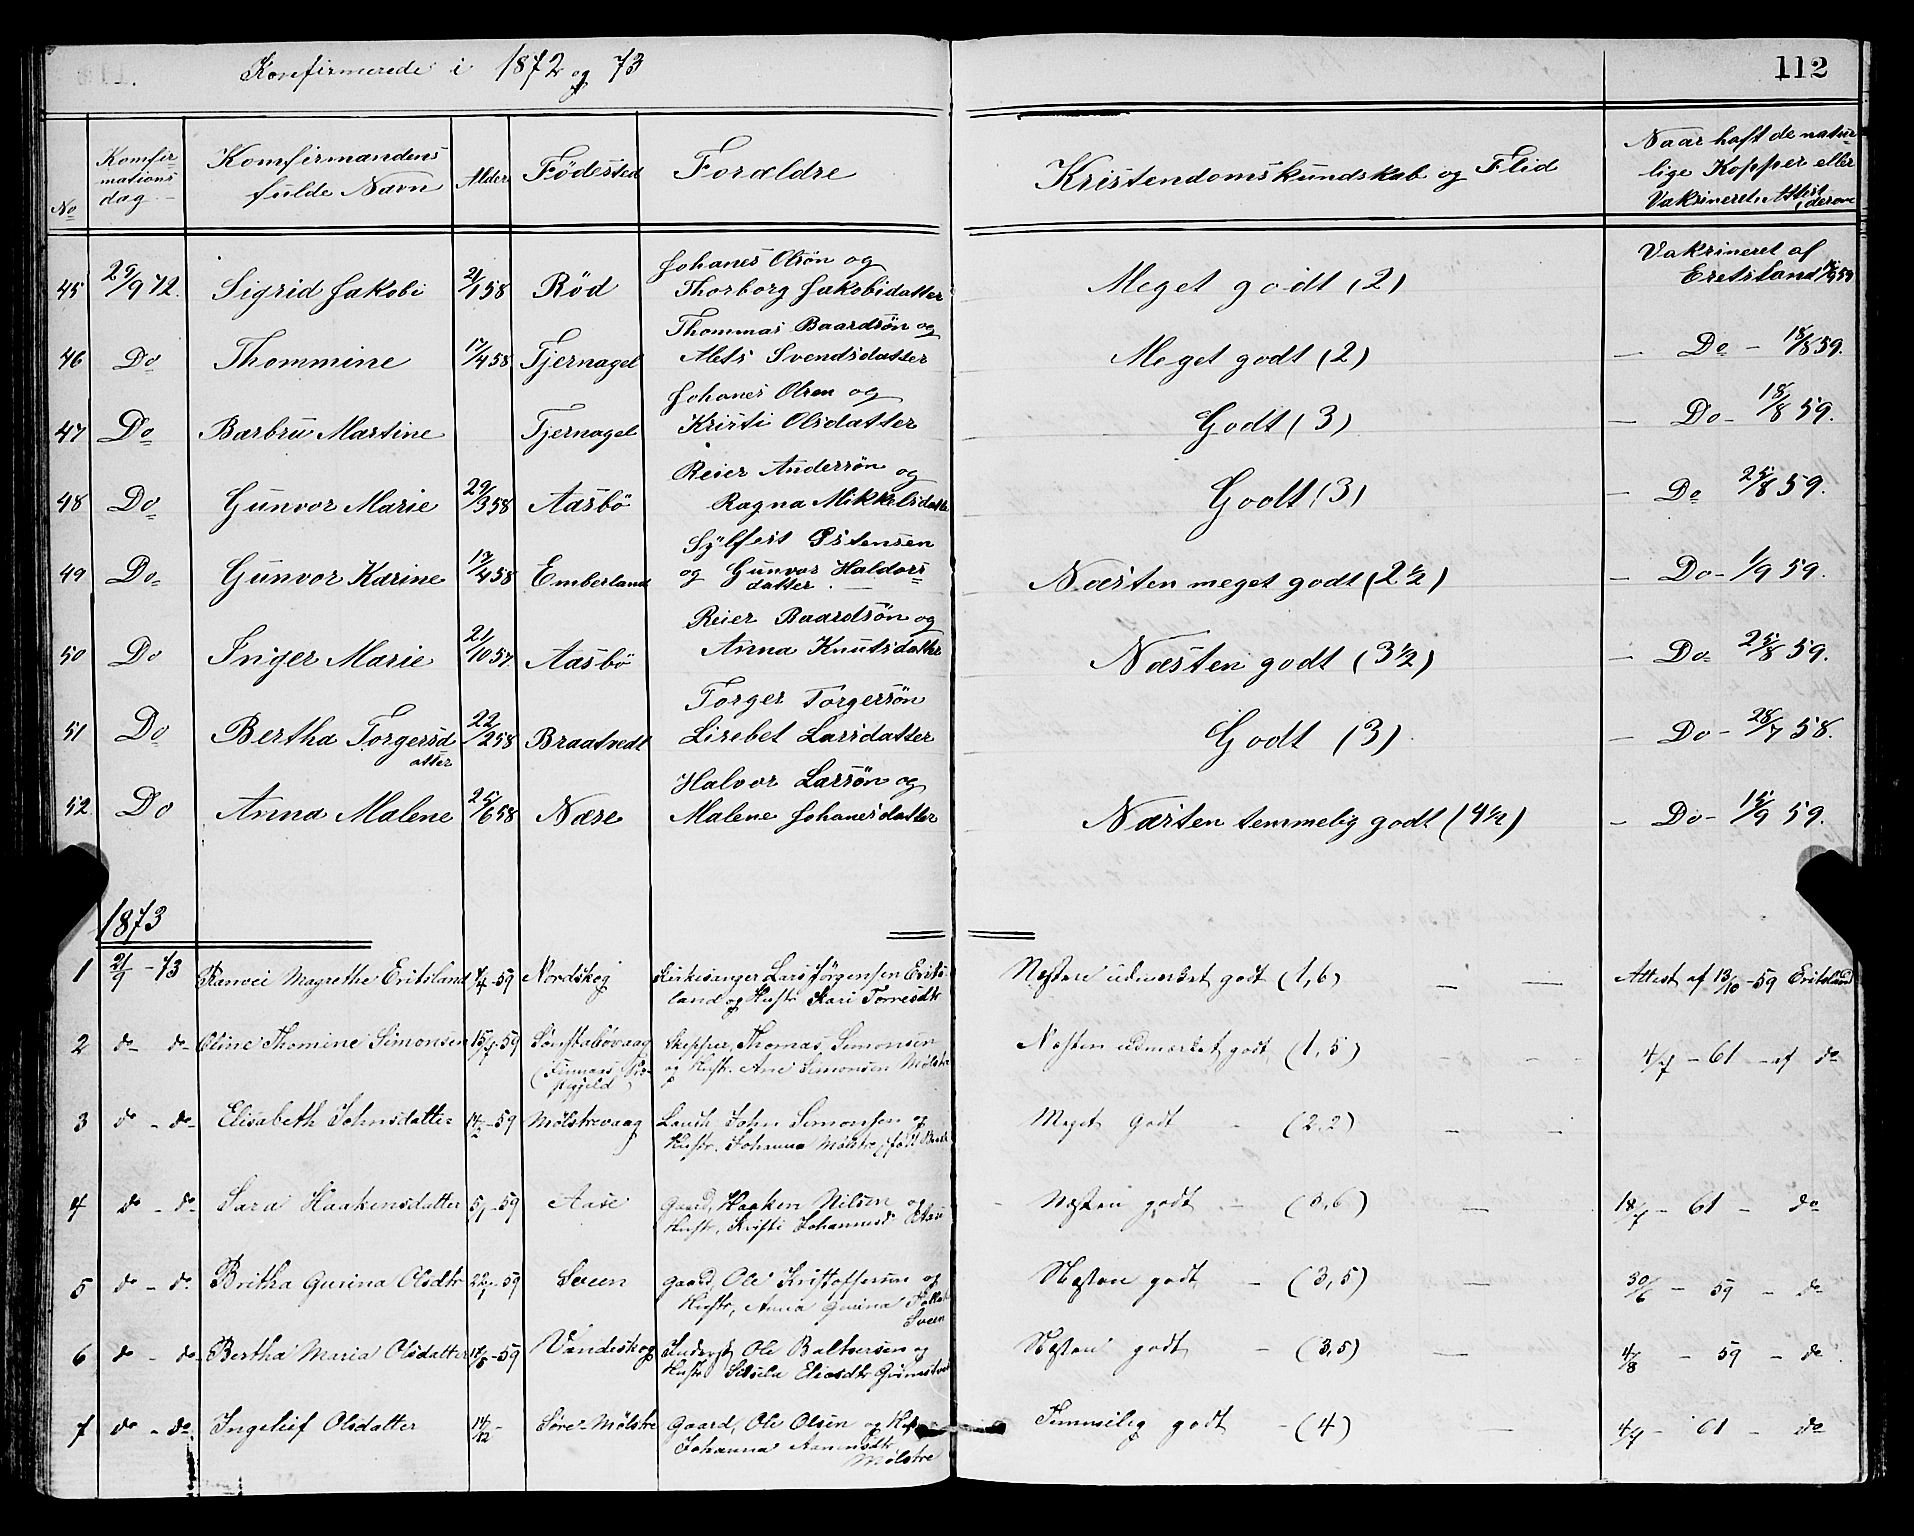 Konfirmerede i 1872 og 73
112
No
Komfirmations dag
Komfirmandens fulde Navn
Alder
Födested
Forældre
Kristendomskundskab og Flid
Naar haft de naturlige Kopper eller Vakrineret, Attest derom
45 29/9 72. Sigrid Jakobi 21/1 58 Röd Johanes Olsön og Thorborg Jakobidatter Meget godt (2) Vakrineret af Eretsland 59
46 Do Thommine 17/4 58 Tjernagel Thommas Baardsön og Mets Svendsdatter Meget godt (2) — Do — 18/8 59.
47 Do Barbru Martine Tjernagel Johanes Olsen og Kristi Olsdatter Godt (3) — Do — 18/8 59.
48 Do Gunvor Marie 29/3 58 Aasbö Reier Andersön og Ragna Mikkelsdatter Godt (3) — Do 25/8 59.
49 Do Gunvor Karine 17/4 58 Emberland Sylfest Östensen og Gunvor Haldorsdatter Næsten meget godt (2 1/2) — Do — 1/9 59.
50 Do Inger Marie 21/10 57 Aasbö Reier Baardsön og Anna Knutsdatter Næsten godt (3 1/2) — Do 25/8 59.
51 Do Bertha Torgersdatter 22/2 58 Braatvedt Torger Torgersön Lisebet Larsdatter Godt (3) — Do — 28/7 58.
52 Do Anna Malene 25/6 58 Nære Halvor Larsön og Malene Johanesdatter Næsten temmelig godt (4 1/2) — Do — 15/9 59.
1873
1 21/9 – 73 Ranvei Magrethe Eritsland 4/4 – 59 Nordskog Kirkesanger Lars Jörgensen Eritsland og Hustr Kari Tornesdtr Næsten udmærket godt (1,6) — — Attest af 13/10 – 59 Eritsland
2 do – do Oline Thomine Simonsen 15/7 – 59 Sönstabövaag (Finnaas Præstegjeld) Skipper, Thomas Simonsen og Hustr. Ane Simonsen Mölstre Næsten udmærket godt (1,5) 4/7 – 61 – af do
3 do – do Elisabeth Johnsdatter 14/2 – 59 Mölstrevaag John Simonsen og Hustr. Johanna Mölstre, född Meget Godt – (2,2) — —
4 do – do Sara Haakensdatter 5/1 – 59 Aase Gaard, Haaken Nilsen og Hustr, Kristi Johannesd Næsten godt – (3,6) — 18/7 – 61 – do
5 do – do Britha Gurina Olsdtr 22/1 – 59 Sveen Gaard, Ole Kristoffersen og Hustr, Anna Gurina Sveen Næsten godt – (3,5) — 30/6 – 59 – do
6 do – do Bertha Maria Olsdatter 17/5 – 59 Vandeskog Ole Baltsersen og Hustr Sissela Eliasdtr Næsten godt – (3,5) — 4/8 – 59 – do
7 do – do Ingelief Olsdatter 14/12 – Söre-Mölstre Gaard, Ole Olsen og Hustr Johanna Mölstre Temmelig godt – (4) — 4/7 – 61 – do